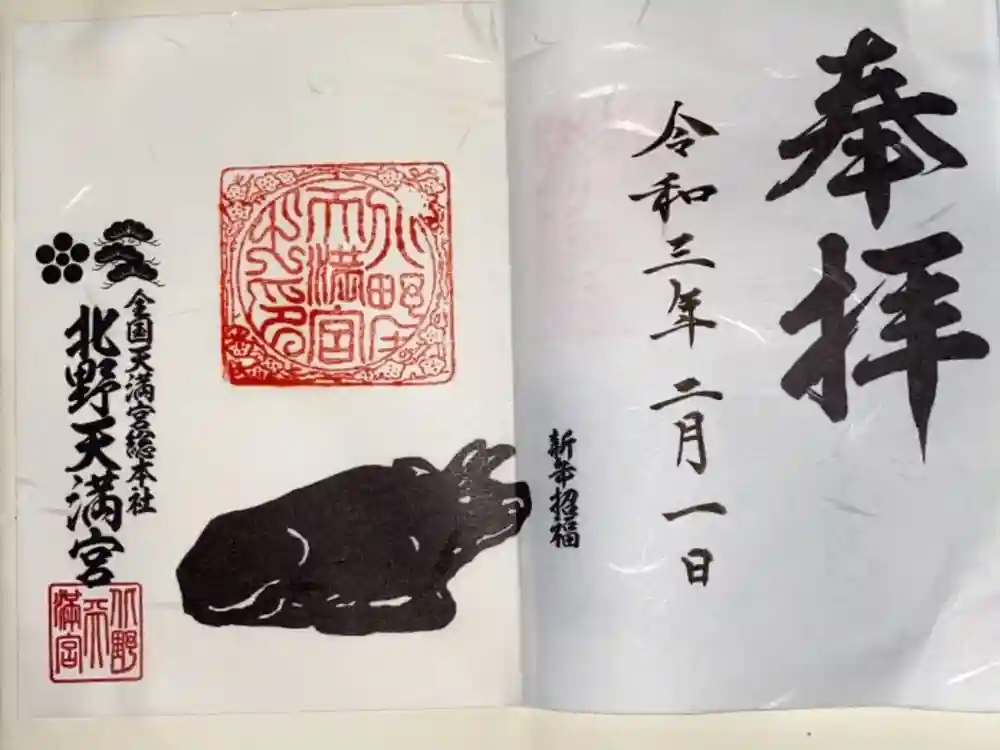 奉拝
令和三年二月一日
新年招福
北野天満宮之印
全国天満宮総本社
北野天満宮
北野天満宮